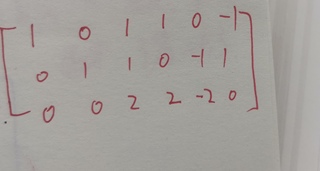 1 0 1 1 0 -1
0 1 1 0 -1 1
0 0 2 2 -2 0